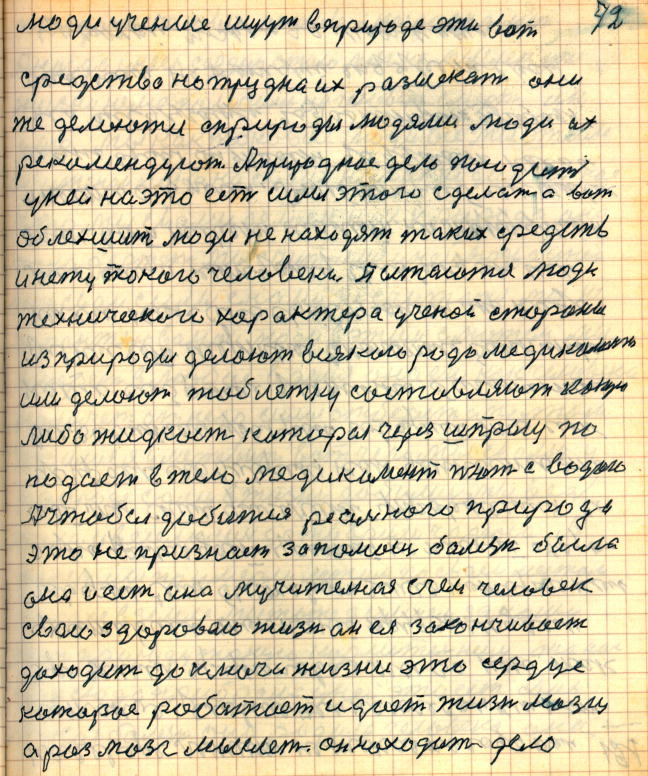 72
люди ученые ищут в природе эти вот
средство но трудна их разискат они
же делаютси с природы людями люди их
рекомендуют. А природное дело погодит
у ней на это ест сили этого сделат а вот
облехшит люди не находят таких средств
и нету токого человека пытаются люди
технического характера ученой стороны
из природы делают всякого родо медикаменто
или делают таблетку составляют какую
либо жидкост которая через шприцу по
подает в тело медикамент пют с водою
А чтобы добится реалного природа
это не признает за помощ болезн была
она и ест она мучителная с чем человек
свою здоровою жизн он ея закончивает
доходит до ключа жизни это сердце
которое работает и дает жизн мозгу
а раз мозг мыслет он находит дело